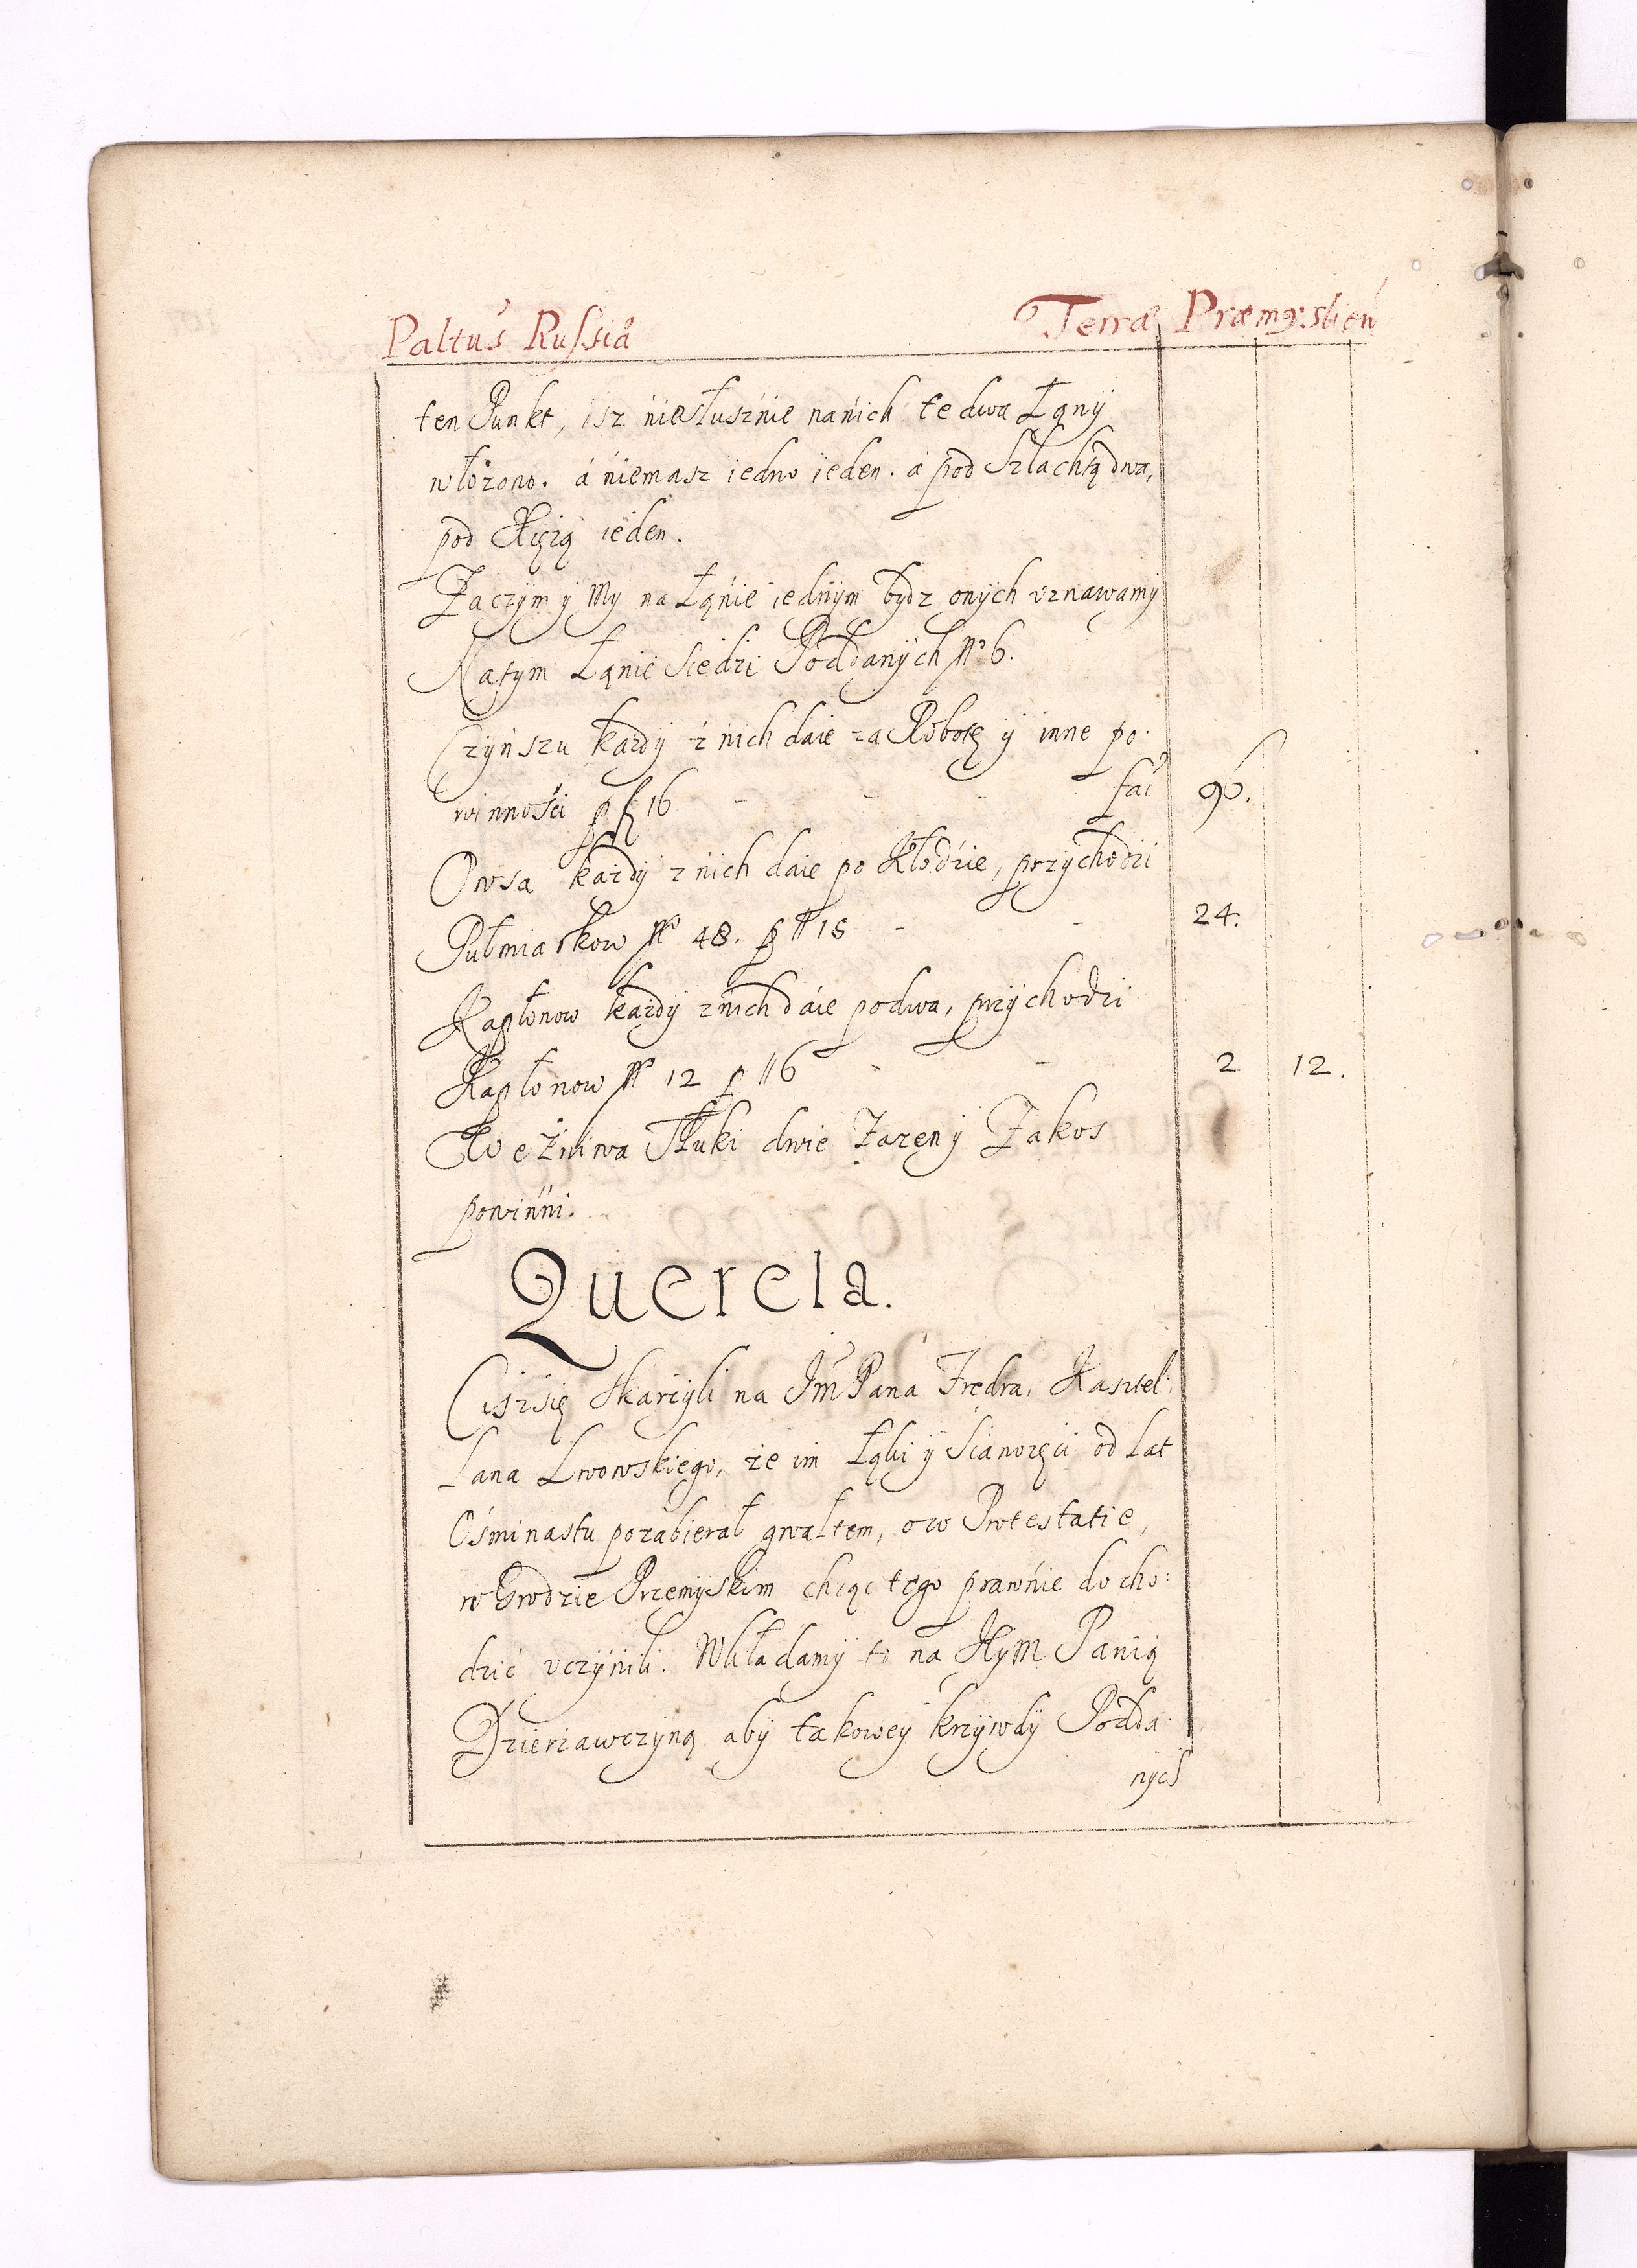 Paltus Russiæ Terræ Præmysłien
ten Punkt, isz niesłusznie nanich te dwa Łany
włożono. á niemasz iedno ieden. á pod Szlachtą dwa,
pod Xiężą ieden.
Zaczym y My na Łąnie iednym bydz onych vznawamy
Natym Łąnie Siedzi Poddanych No 6.
Czynszu każdy z nich daie za Robotę y inne po-
winności p fl 16 - - - fac 96.
Owsa każdy z nich daie po Kłodzie, przychodzi
Pułmiarkow No 48. p # 15 - - 24.
Kapłonow każdy z nich daie podwa, przychodzi
Kapłonow No 12 p # 6 - - 2 12.
We Żniwa Tłuki dwie Zazęny Zakos
powinni.
Querela.
Cisz się skarżyli na Jm Pana Fredra, Kasztel-
lana Lwowskiego, że im Łąki y Sianożęci od Lat
Ośminastu pozabierał gwałtem, oco Protestatie,
w Grodzie Przemyskim chcąc tego prawnie docho:
dzić vczynili. Wkładamy to na JeyM Panią
Dzierżawczyną. aby takowey krzywdy Podda-
nych